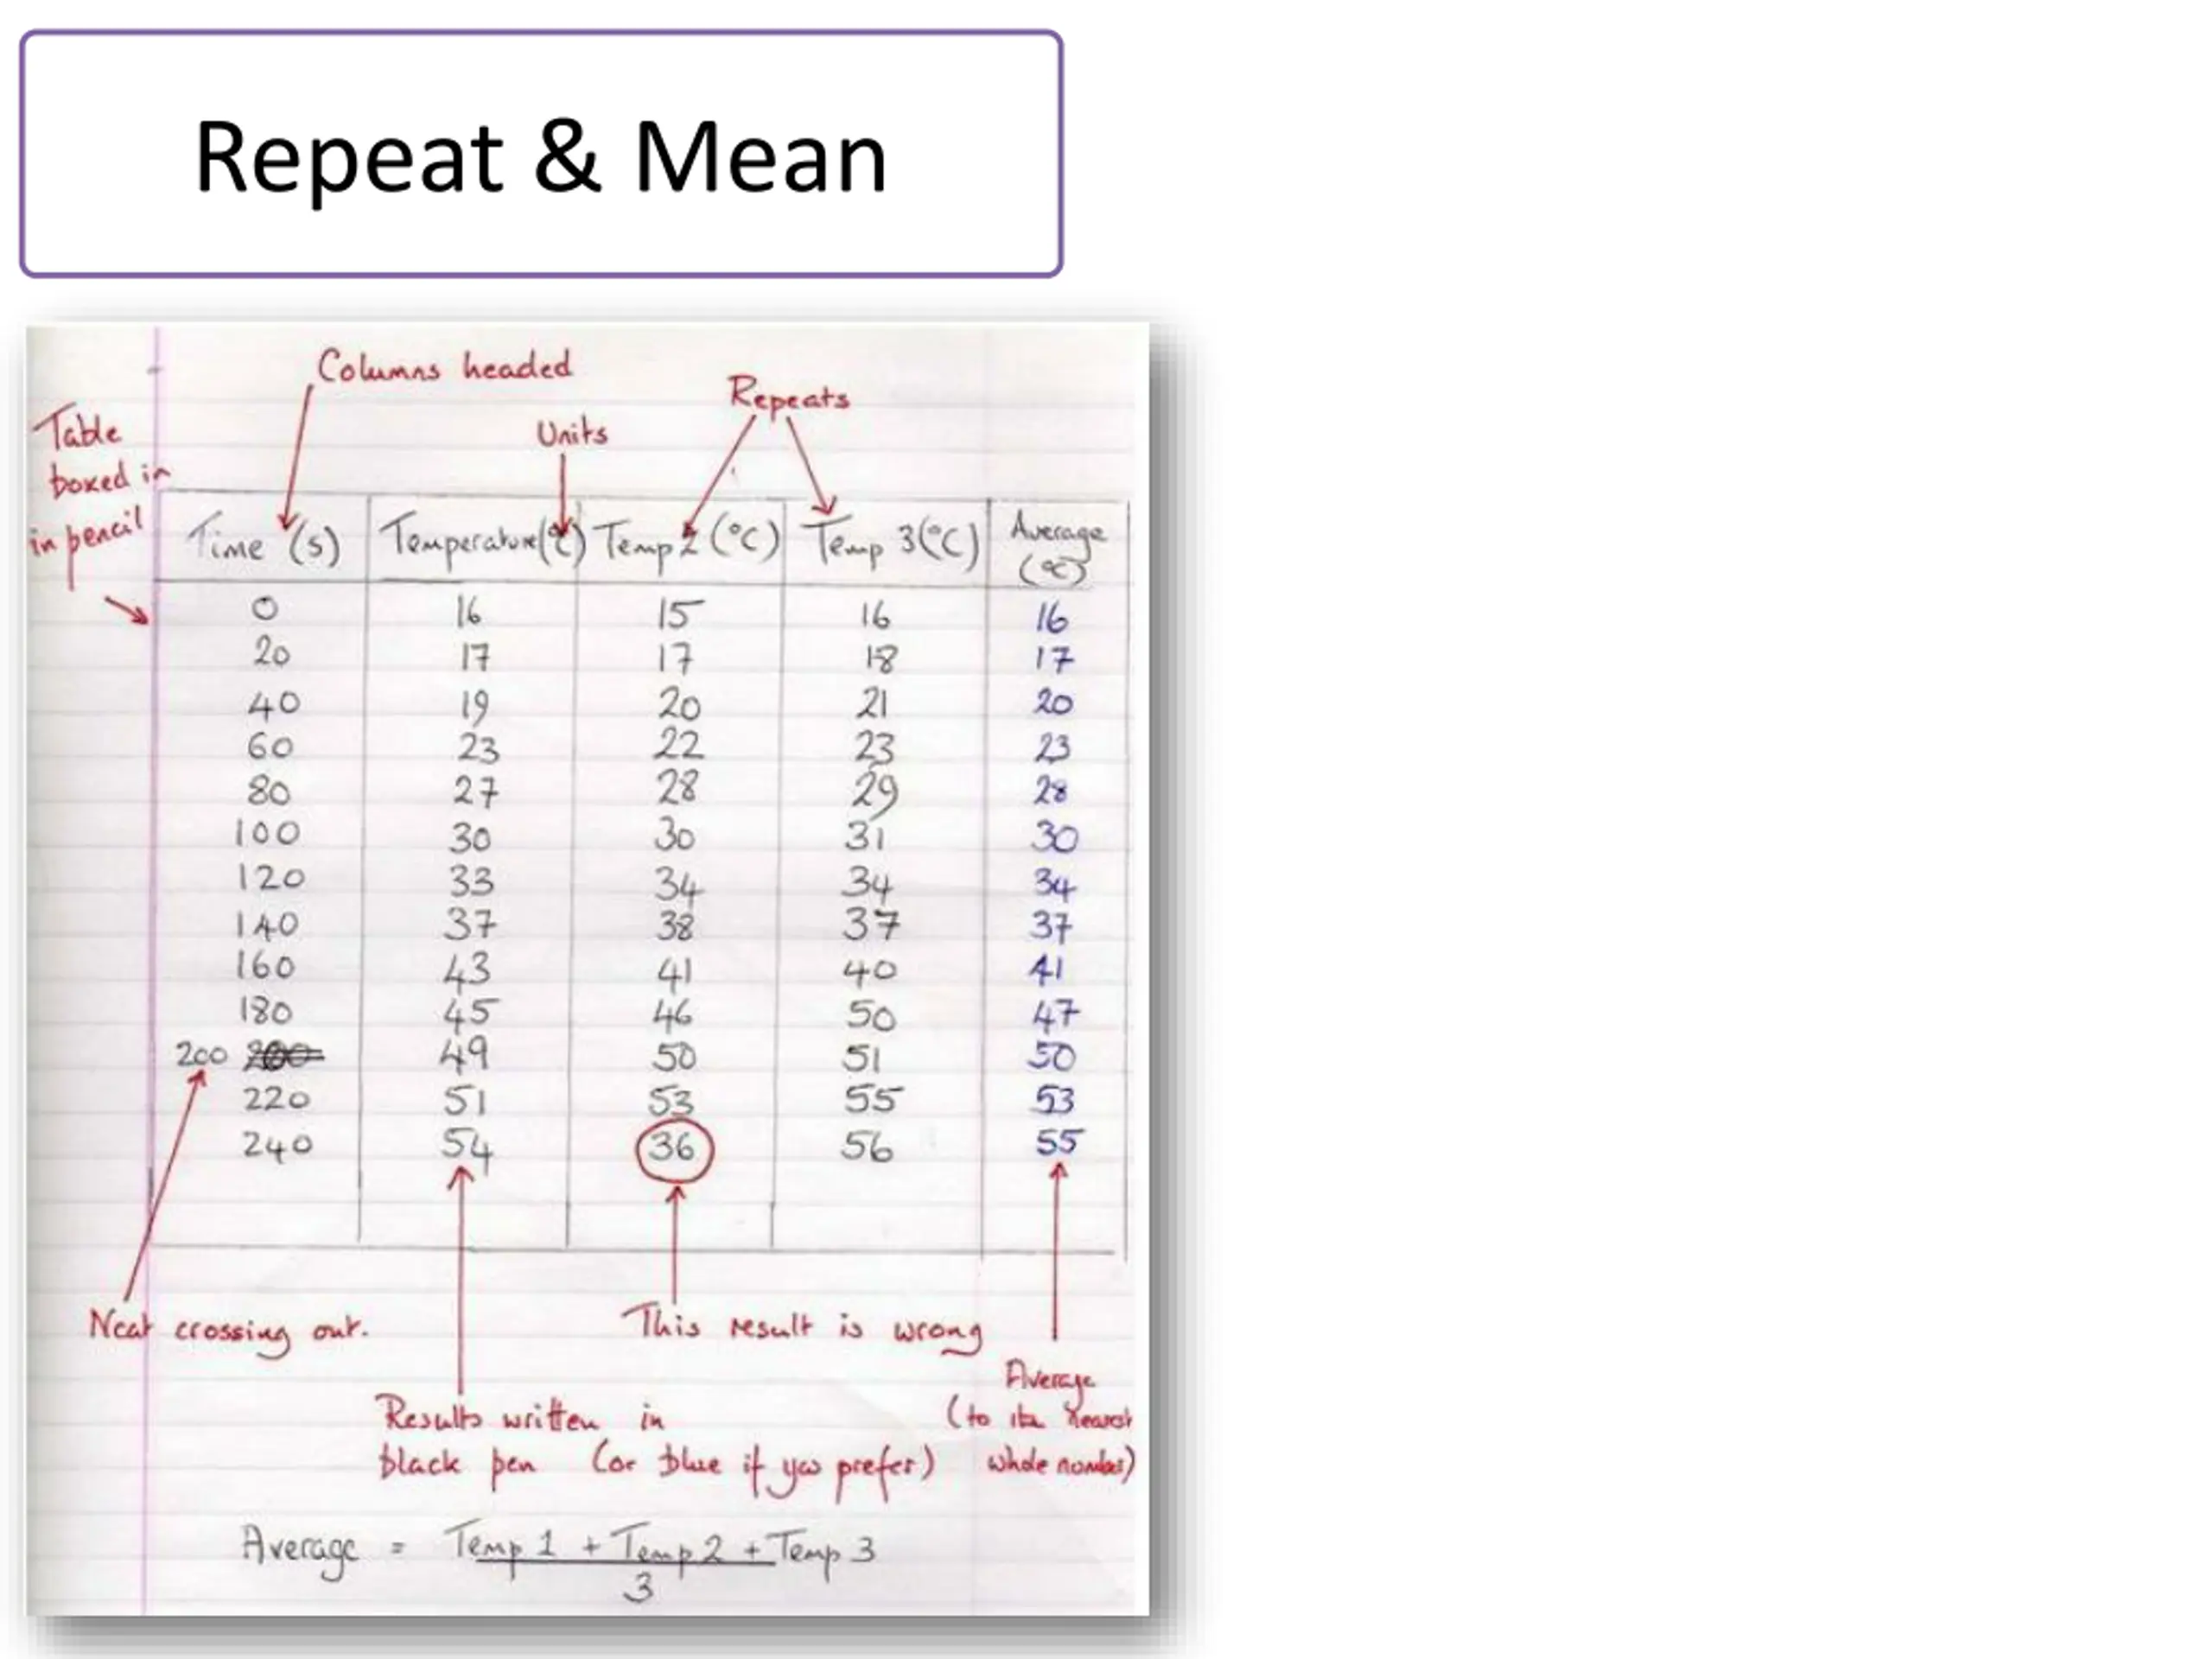 Repeat & Mean
Columns headed
Repeats
Units
Table
boxed in
in pencil
Time (s) Temperature(°C) Temp 2 (°C) Temp 3(°C) Average (°C)
0 16 15 16 16
20 17 17 18 17
40 19 20 21 20
60 23 22 23 23
80 27 28 29 28
100 30 30 31 30
120 33 34 34 34
140 37 38 37 37
160 43 41 40 41
180 45 46 50 47
200 49 50 51 50
220 51 53 55 53
240 54 36 56 55
Neat crossing out.
This result is wrong
Results written in
black pen (or blue if you prefer)
Average
(to the nearest
whole number)
Average = Temp 1 + Temp 2 + Temp 3
3